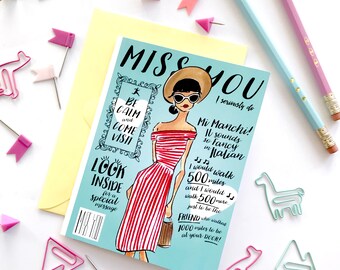 MISS YOU
I seriously do
BE
CALM and
COME
VISIT
Mi Manchi!
It sounds
so fancy
in Italian
LOOK
INSIDE
for special
message
I would walk
500 miles
and I would
walk 500 more
just to be the
FRIEND who walked
1000 miles to be
at your DOOR!